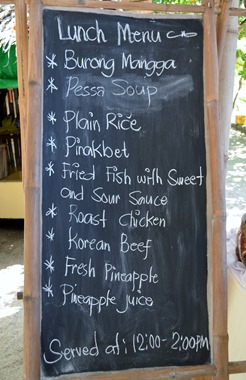 Lunch Menu
* Burong Mangga
* Pessa Soup
* Plain Rice
* Pinakbet
* Fried Fish with Sweet
and Sour Sauce
* Roast Chicken
* Korean Beef
* Fresh Pineapple
* Pineapple juice
Served at: 12:00-2:00PM